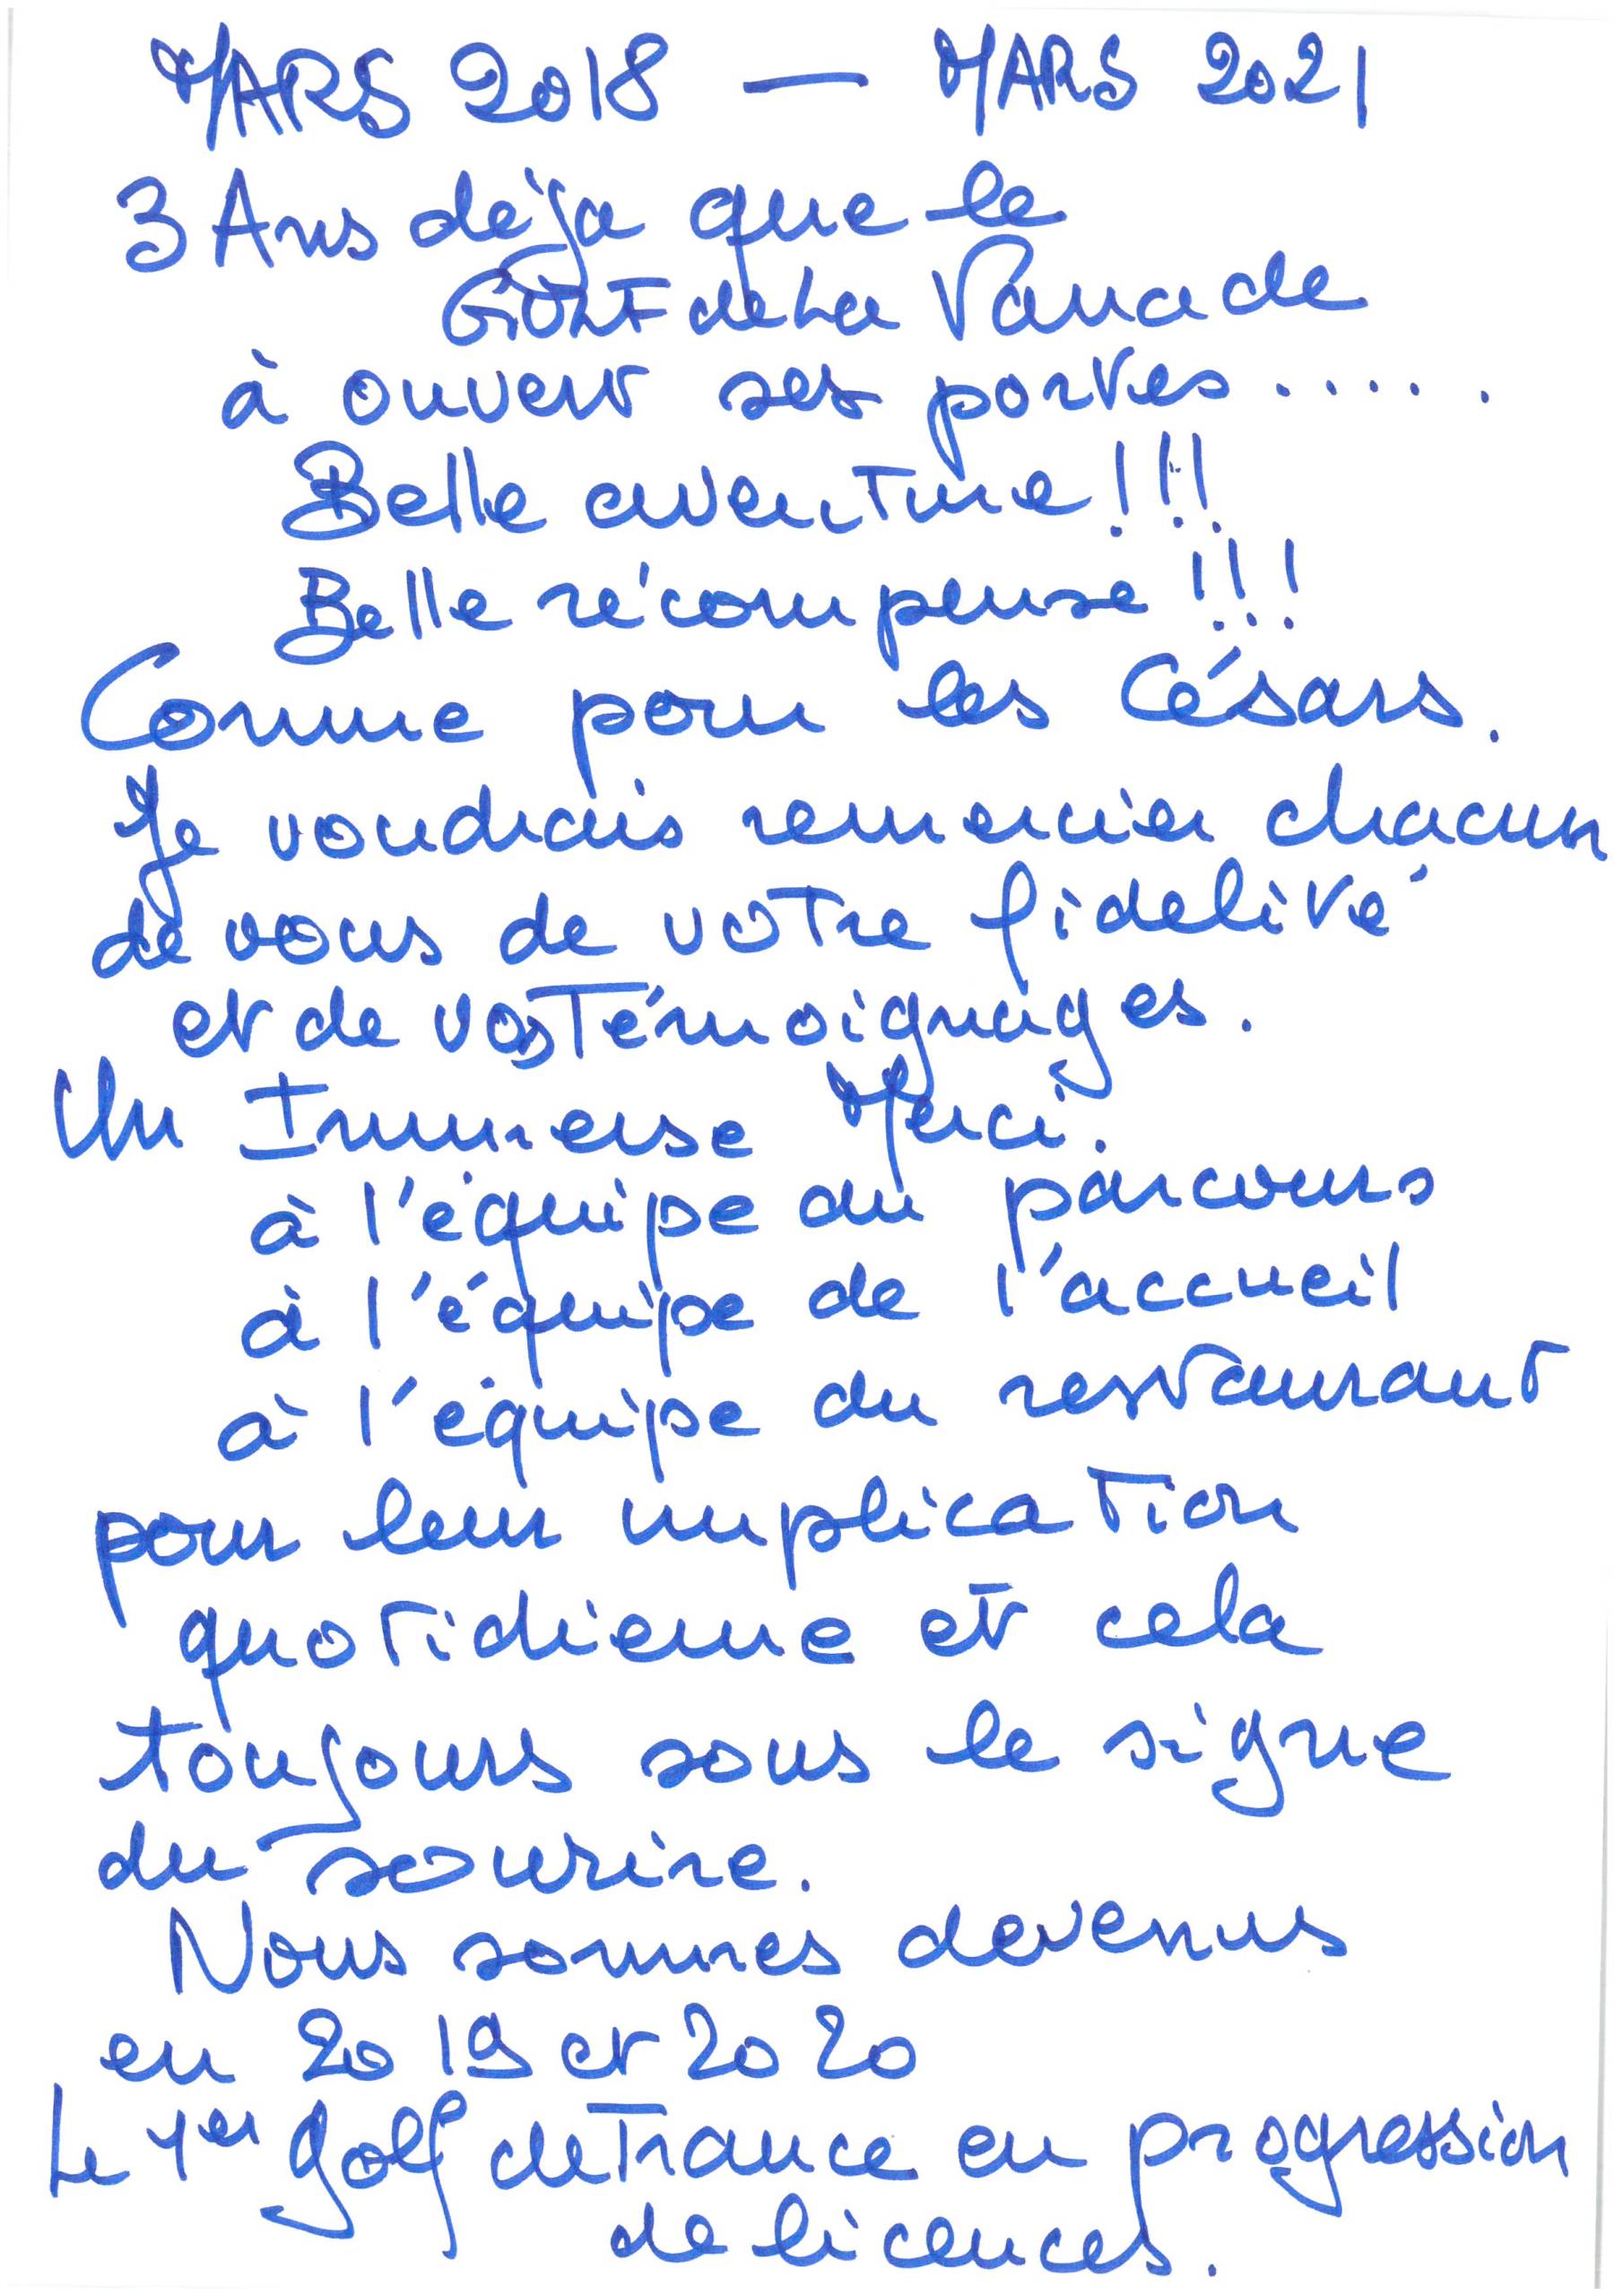 MARS 2018 — MARS 2021
3 Ans déjà que le
GOLF de La Vanade
à ouvert ses portes.....
Belle aventure !!!
Belle récompense !!!
Comme pour les Césars.
Je voudrais remercier chacun
de vous de votre fidelité
et de vos Témoignages.
Un Immense Merci.
à l'équipe du parcours
à l'équipe de l'accueil
à l'équipe du restaurant
pour leur implication
quotidienne et cela
toujours sous le signe
du sourire.
Nous sommes devenus
en 2019 et 2020
Le 1er golf de France en progression
de licences.